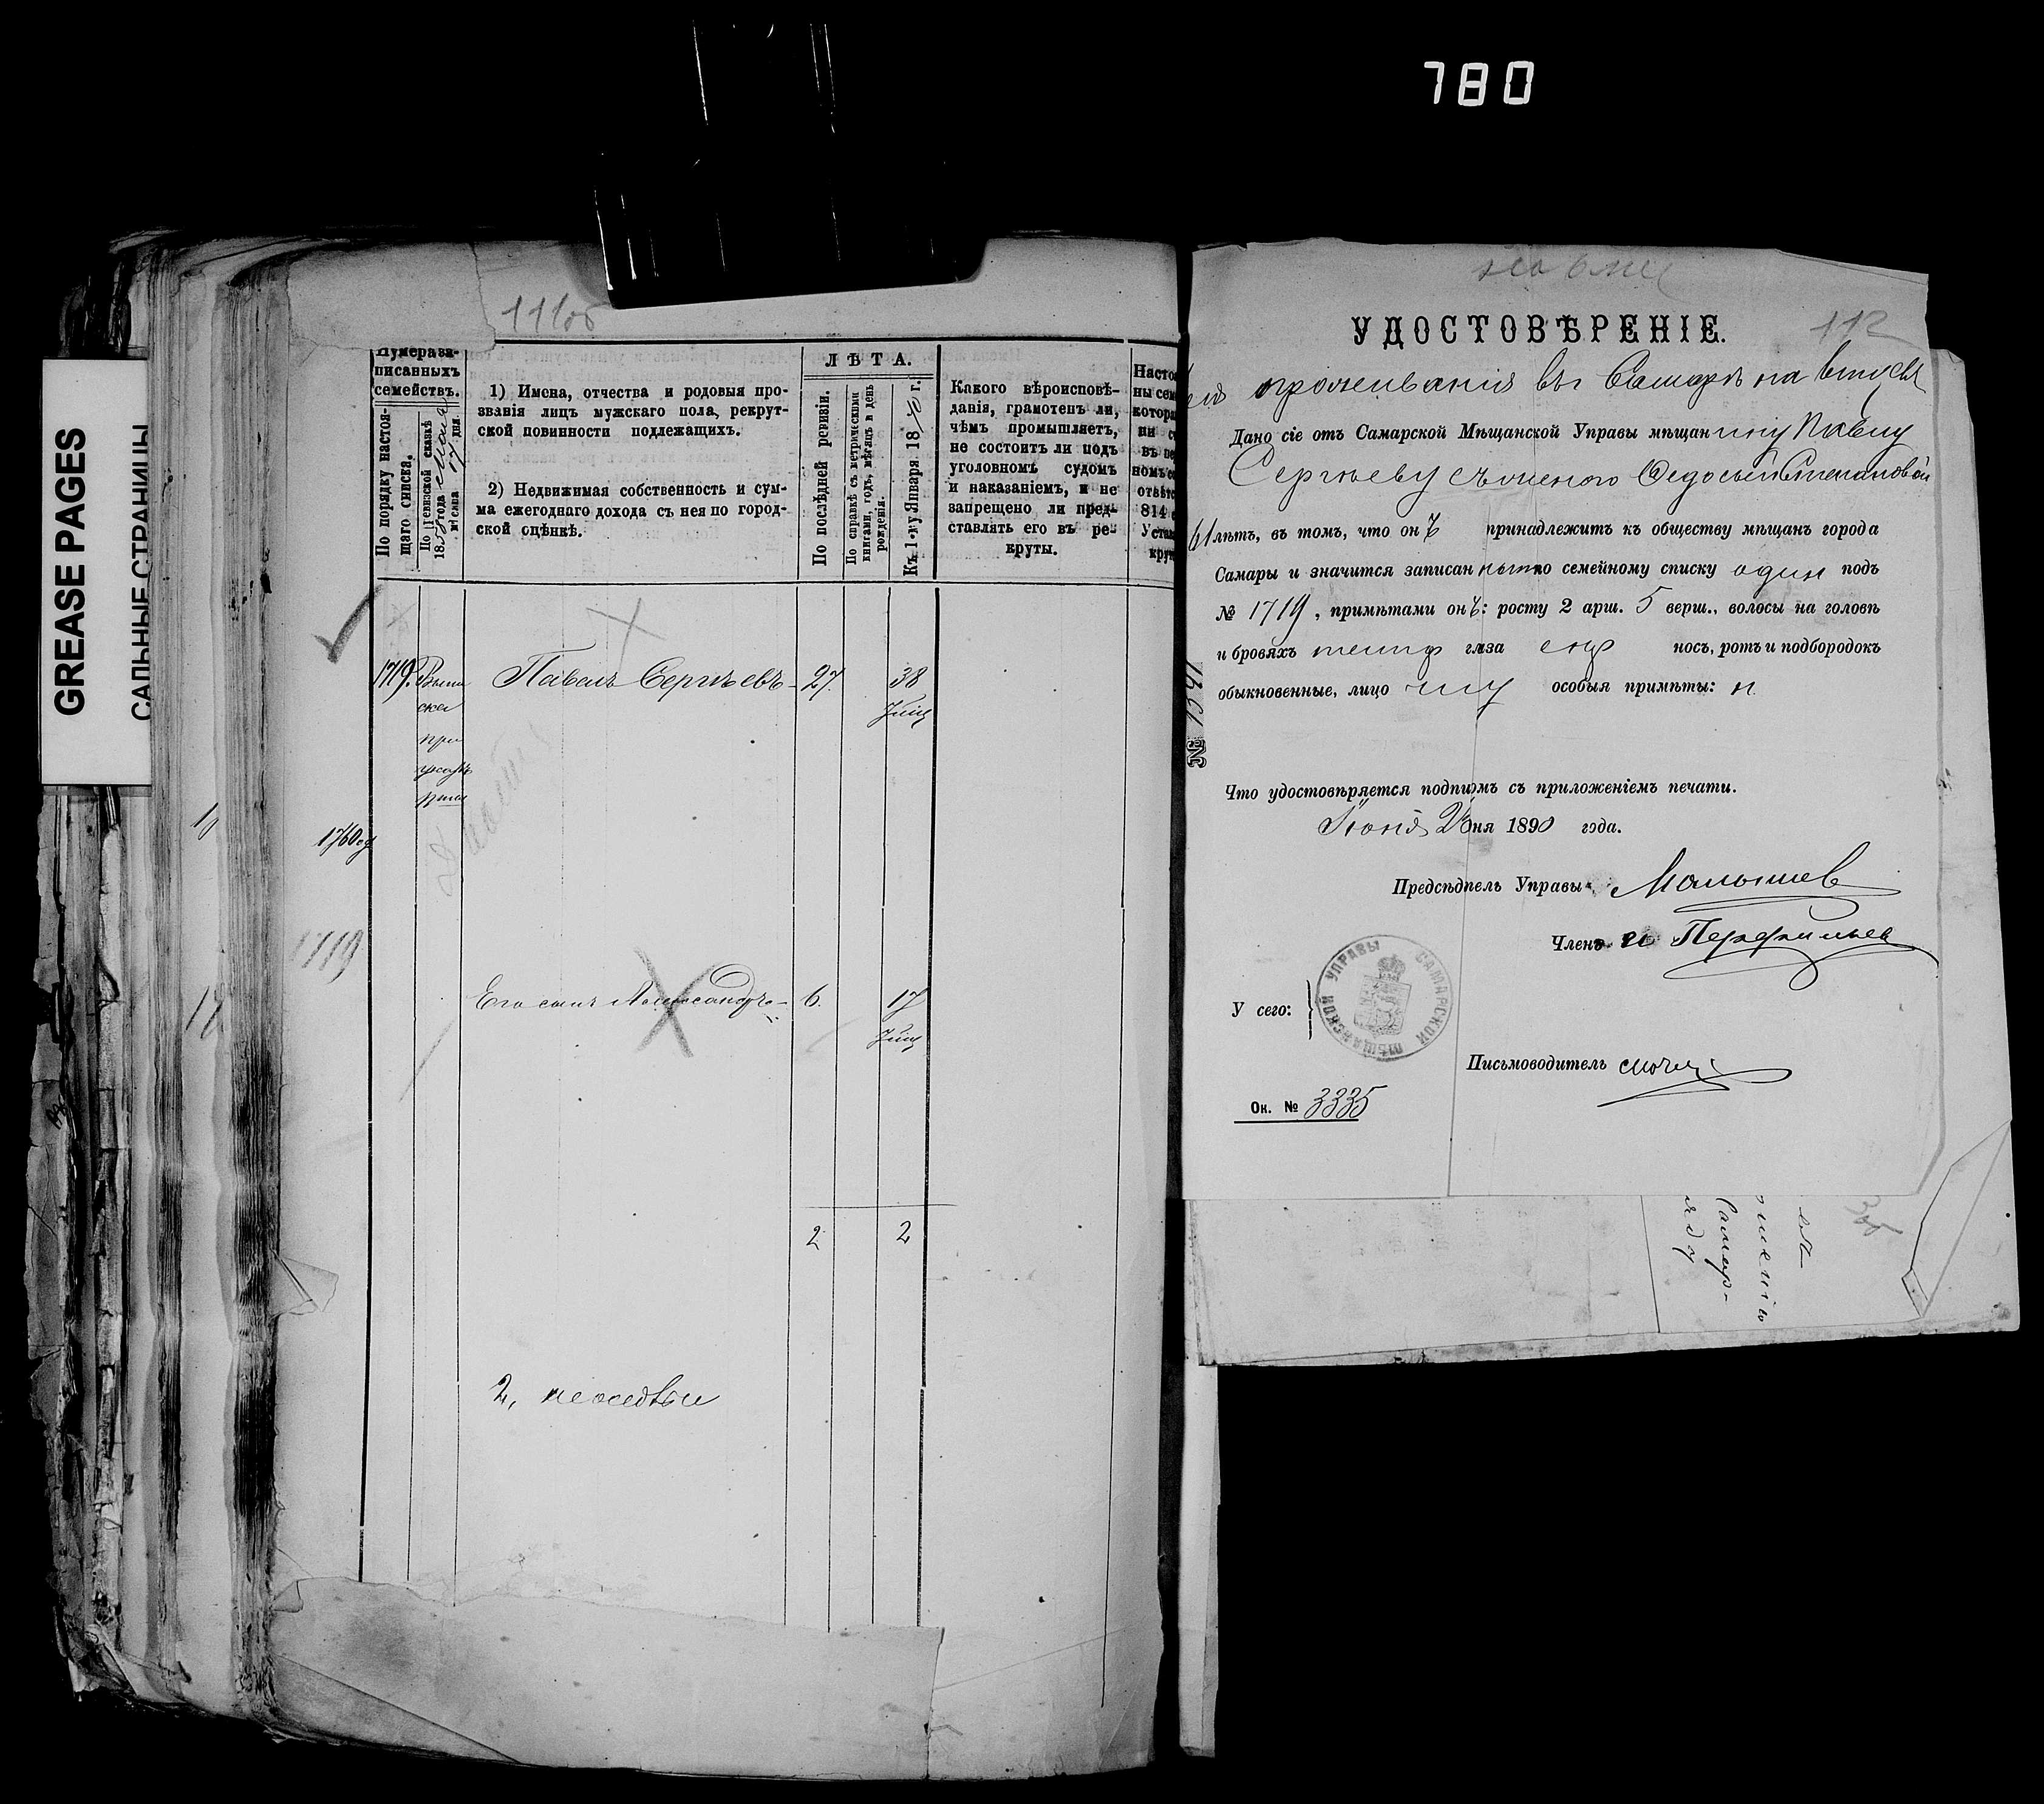 780
GREASE PAGES
САЛЬНЫЕ СТРАНИЦЫ
111об
Нумера за-
писанныхъ
семействъ.
По порядку настоя-
щаго списка.
По Ревизской сказкѣ
1858 года
мѣсяца 17 дня.
1) Имена, отчества и родовыя про-
званія лицъ мужскаго пола, рекрут-
ской повинности подлежащихъ.
2) Недвижимая собственность и сум-
ма ежегоднаго дохода съ нея по город-
ской оцѣнкѣ.
ЛѢТА.
По послѣдней ревизіи.
По справкѣ съ метрическими
книгами, годъ, мѣсяцъ и день
рожденія.
Къ 1-му Января 1870 г.
Какого вѣроисповѣ-
данія, грамотенъ ли,
чѣмъ промышляетъ,
не состоитъ ли подъ
уголовномъ судомъ
и наказаніемъ, и не
запрещено ли пред-
ставлять его въ ре-
круты.
1719. Павелъ Сергѣевъ 27. 38
1760
1719
Его сынъ Александръ 6. 17
2 2
2,
112
УДОСТОВѢРЕНІЕ.
проживанія въ Самарѣ на
Дано сіе отъ Самарской Мѣщанской Управы мѣщанину Павлу
Сергѣеву с женою Федосьей Степановой
61 лѣтъ, въ томъ, что онъ принадлежитъ къ обществу мѣщанъ города
Самары и значится записаннымъ по семейному списку одинъ подъ
№ 1719, примѣтами онъ: росту 2 арш. 5 верш., волосы на головѣ
и бровяхъ глаза нос, ротъ и подбородокъ
обыкновенные, лицо особыя примѣты: н.
Что удостовѣряется подписомъ съ приложеніемъ печати.
Іюня 2 дня 1890 года.
Предсѣдатель Управы Малышев
Членъ И Перфильев
У сего:
САМАРСКОЙ МѢЩАНСКОЙ УПРАВЫ
Письмоводитель
Ок. № 3335